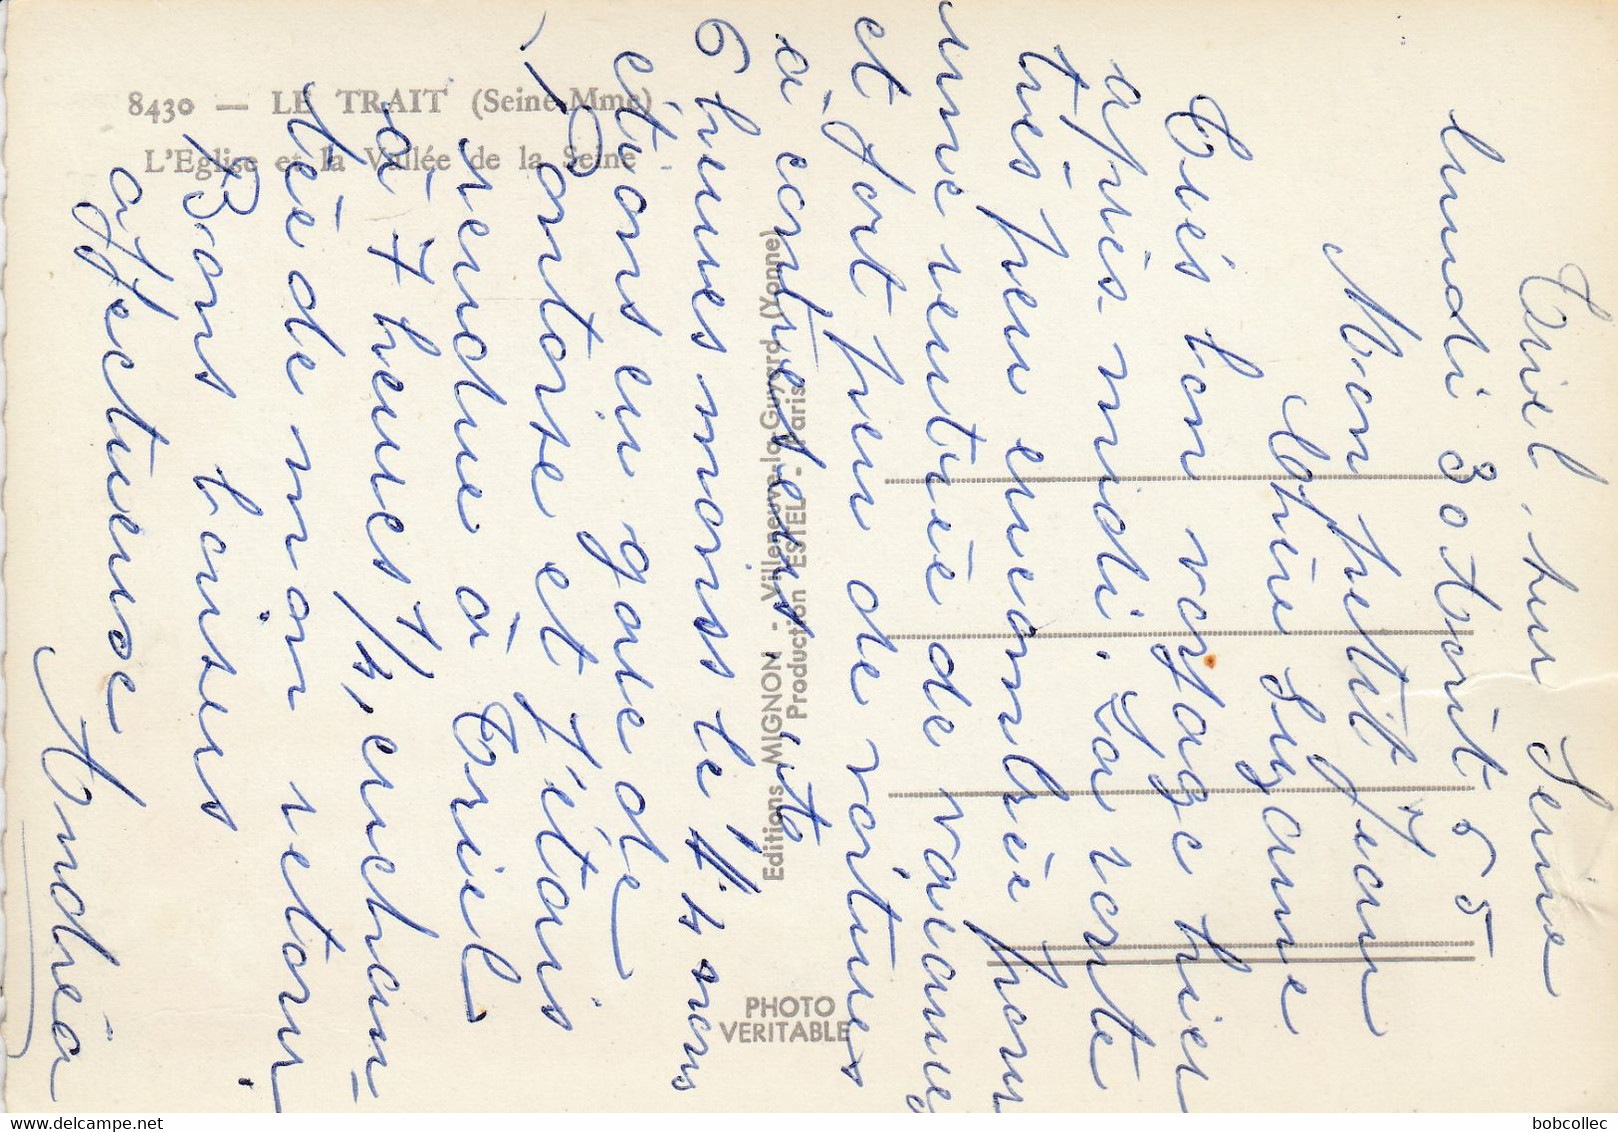 8430 — LE TRAIT (Seine-Mme)
L'Eglise et la Vallée de la Seine
Editions MIGNON - Villeneuve-la-Guyard (Yonne)
Production ESTEL - Paris
PHOTO
VERITABLE
Triel, sur Seine
lundi 30 Août 65
Mon petit Jean
Chère Suzanne
Très bon voyage hier
après-midi. La route
très peu encombrée pour
une rentrée de vacances
et fort peu de voitures
à contresens ité
6 heures moins le 1/4 nous
étions en gare de
Pontoise et j'étais
rendue à Triel
à 7 heures 1/4, enchan-
tée de mon retour.
Bons baisers
affectueuse
Andréa
bobcollec